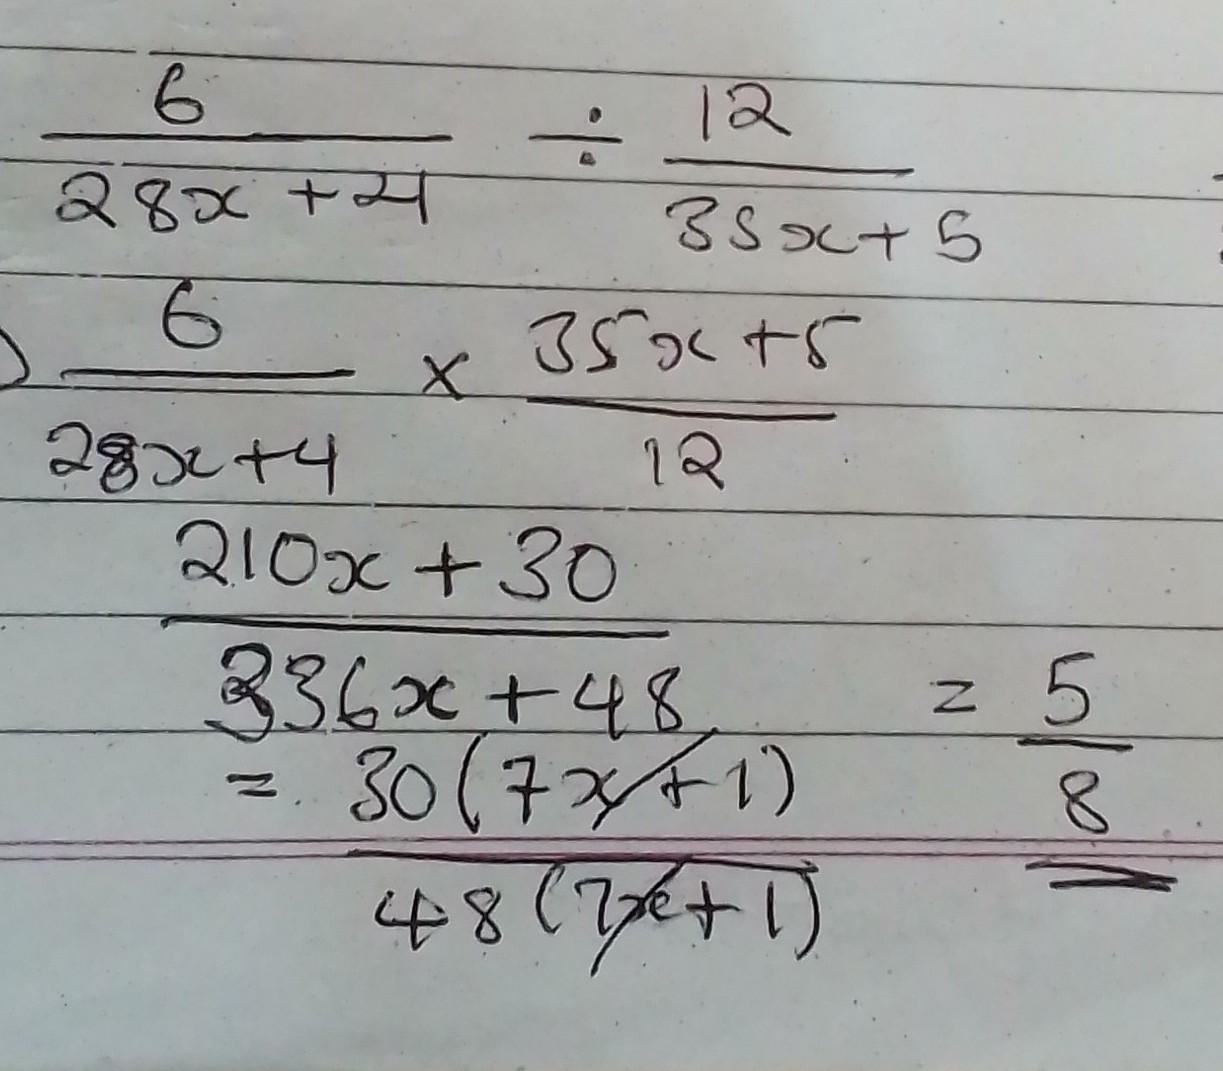 6 / 28x + 4 ÷ 12 / 35x + 5
) 6 / 28x + 4 × 35x + 5 / 12
210x + 30
336x + 48 = 5 / 8
= 30(7x + 1)
48(7x + 1)